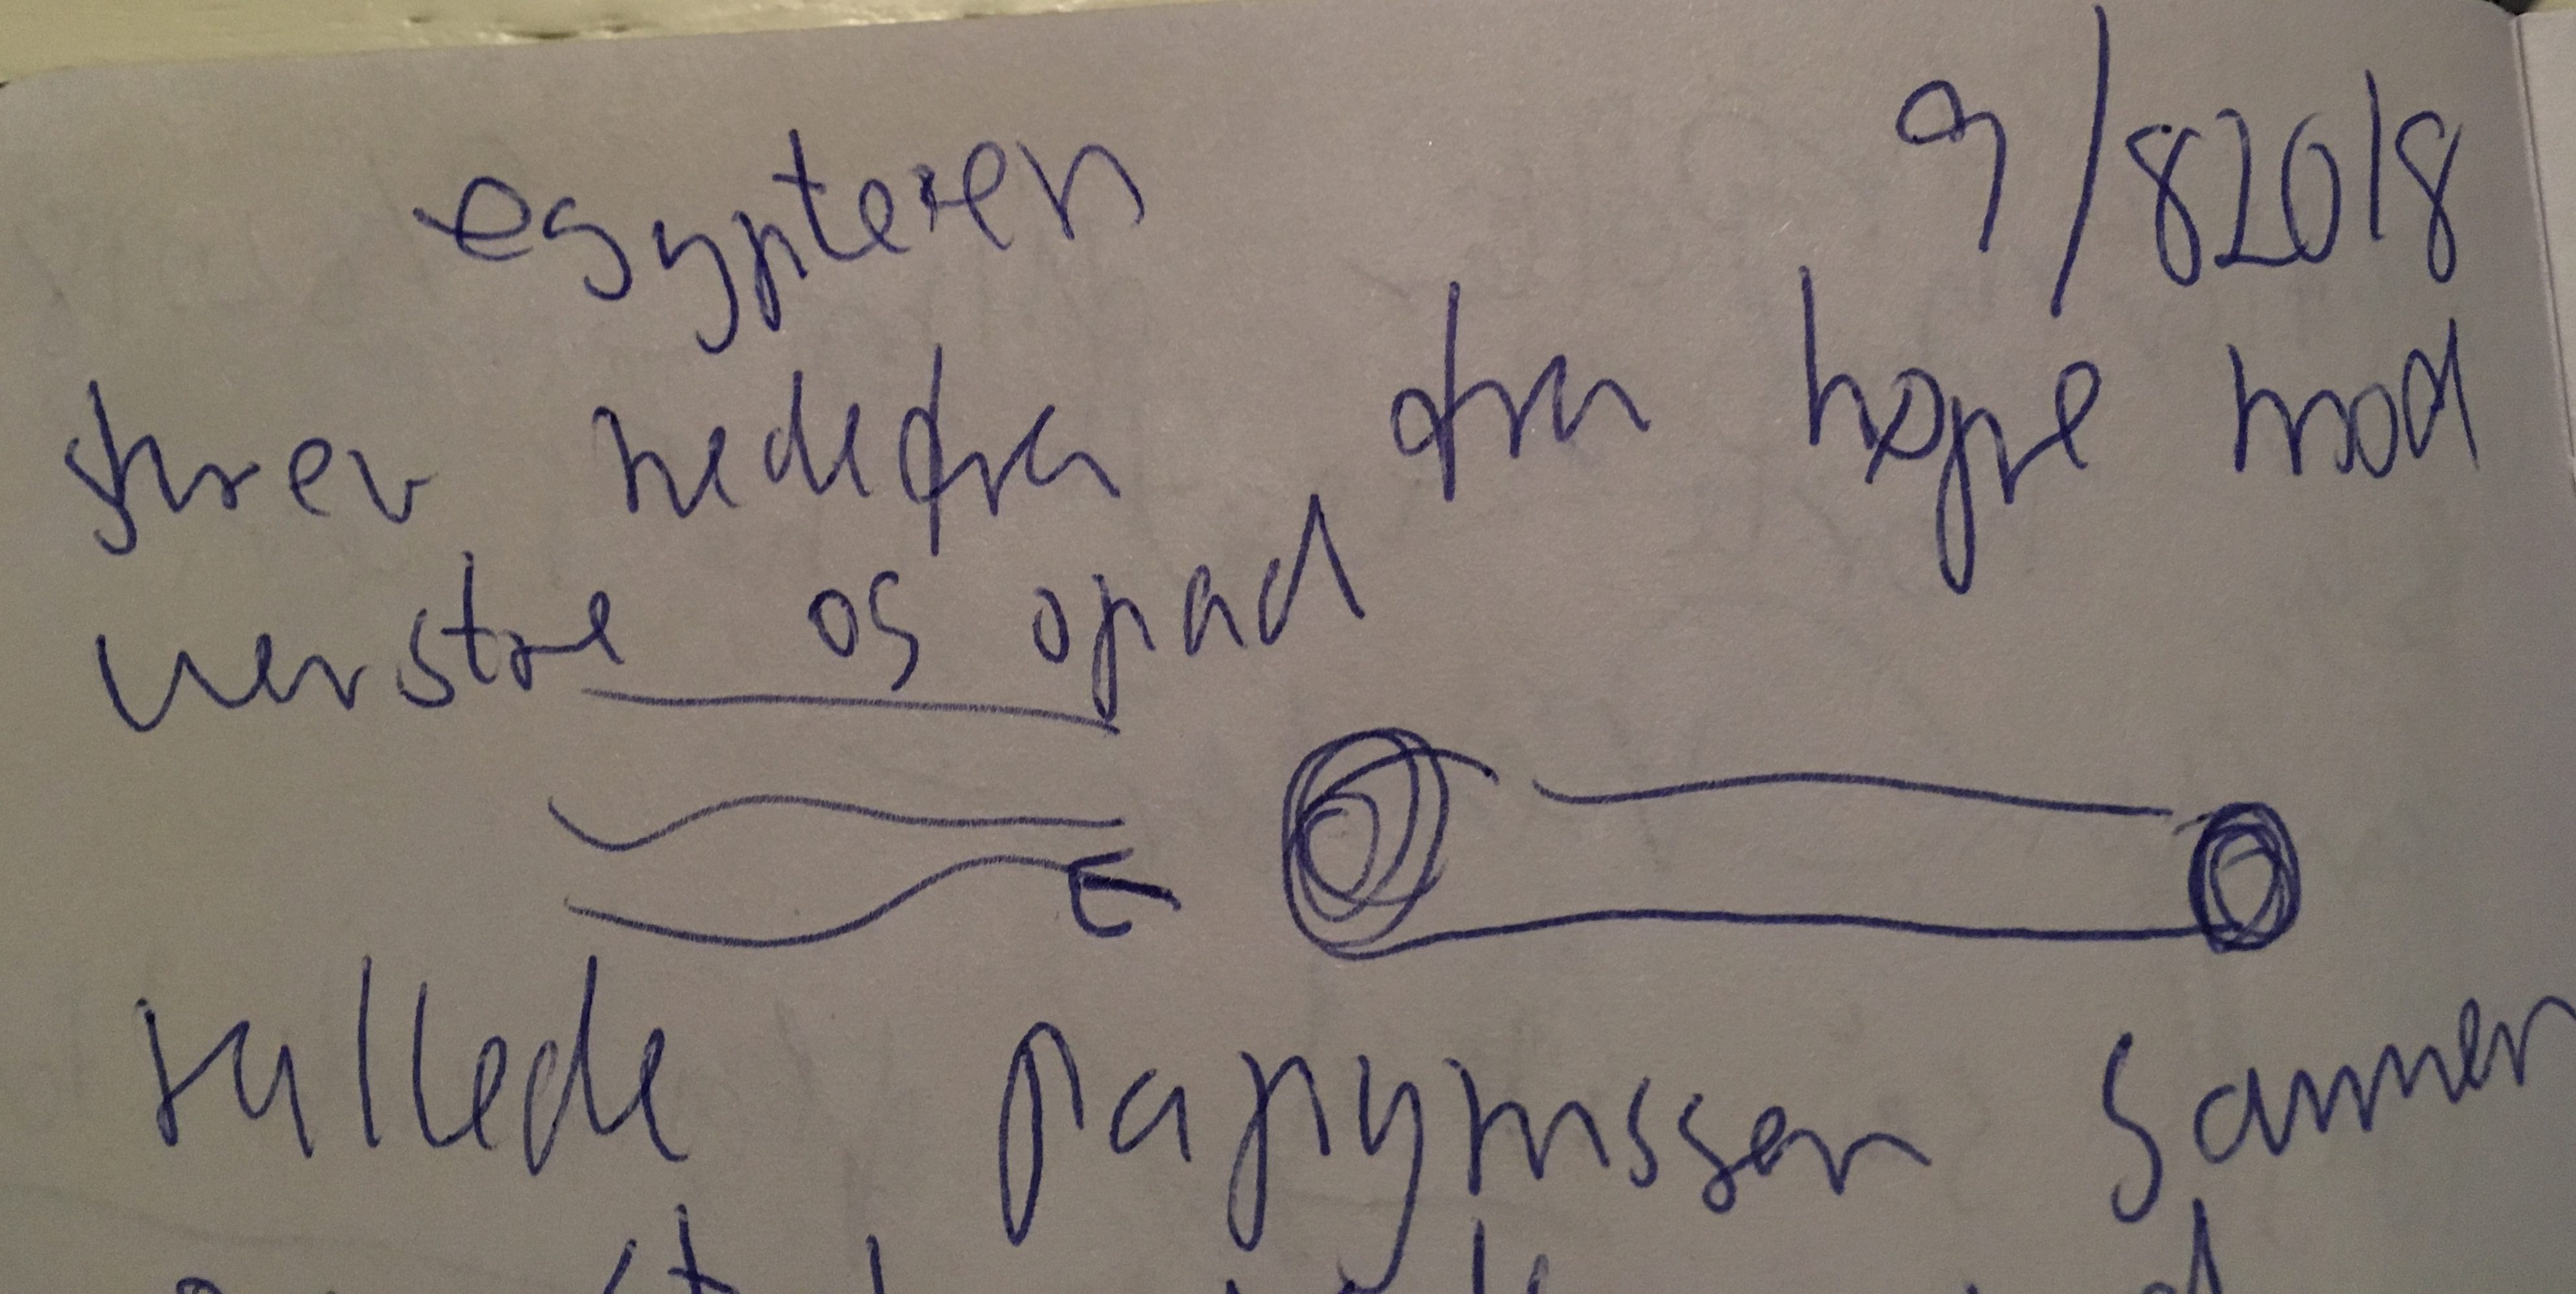 egypteren 9/82018
skrev nedefra fra højre mod
venstre og opad
rullede papyrussen sammen